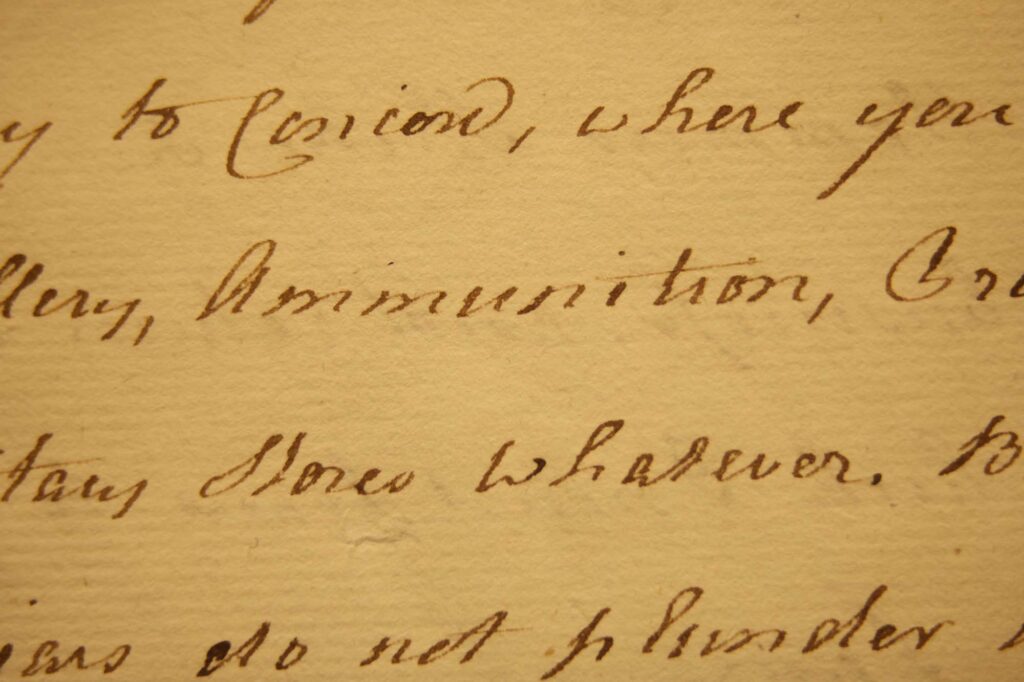 y to Concord, where you
llery, Ammunition, Pro
tary Stores whatever. B
iers do not plunder